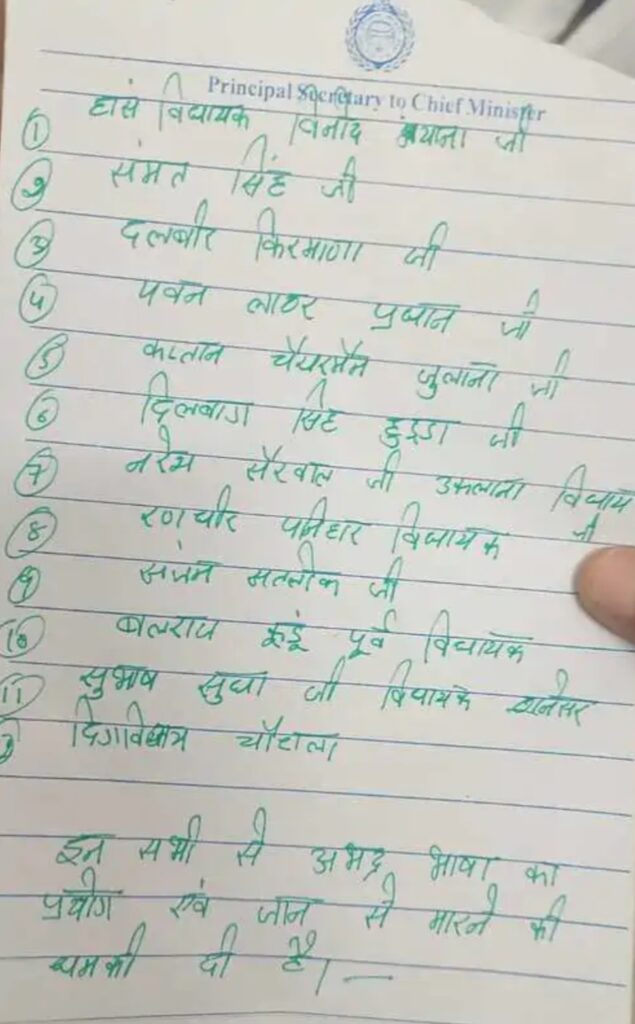 Principal Secretary to Chief Minister
① हांसी विधायक विनोद भयाना जी
② संमत सिंह जी
③ दलबीर किरमाणा जी
④ पवन लाठर प्रधान जी
⑤ कप्तान चैयरमैन जुलाना जी
⑥ दिलबाग सिंह हुड्डा जी
⑦ नरेश सैरवाल जी उकलाना विधायक
जी
⑧ रणधीर पनिहार विधायक
⑨ सतलोक जी
⑩ बलराज कुंडू पूर्व विधायक
⑪ सुभाष सुधा जी विधायक थानेसर
दिगविजय चौटाला
इन सभी से अभद्र भाषा का
प्रयोग एवं जान से मारने की
धमकी दी है।